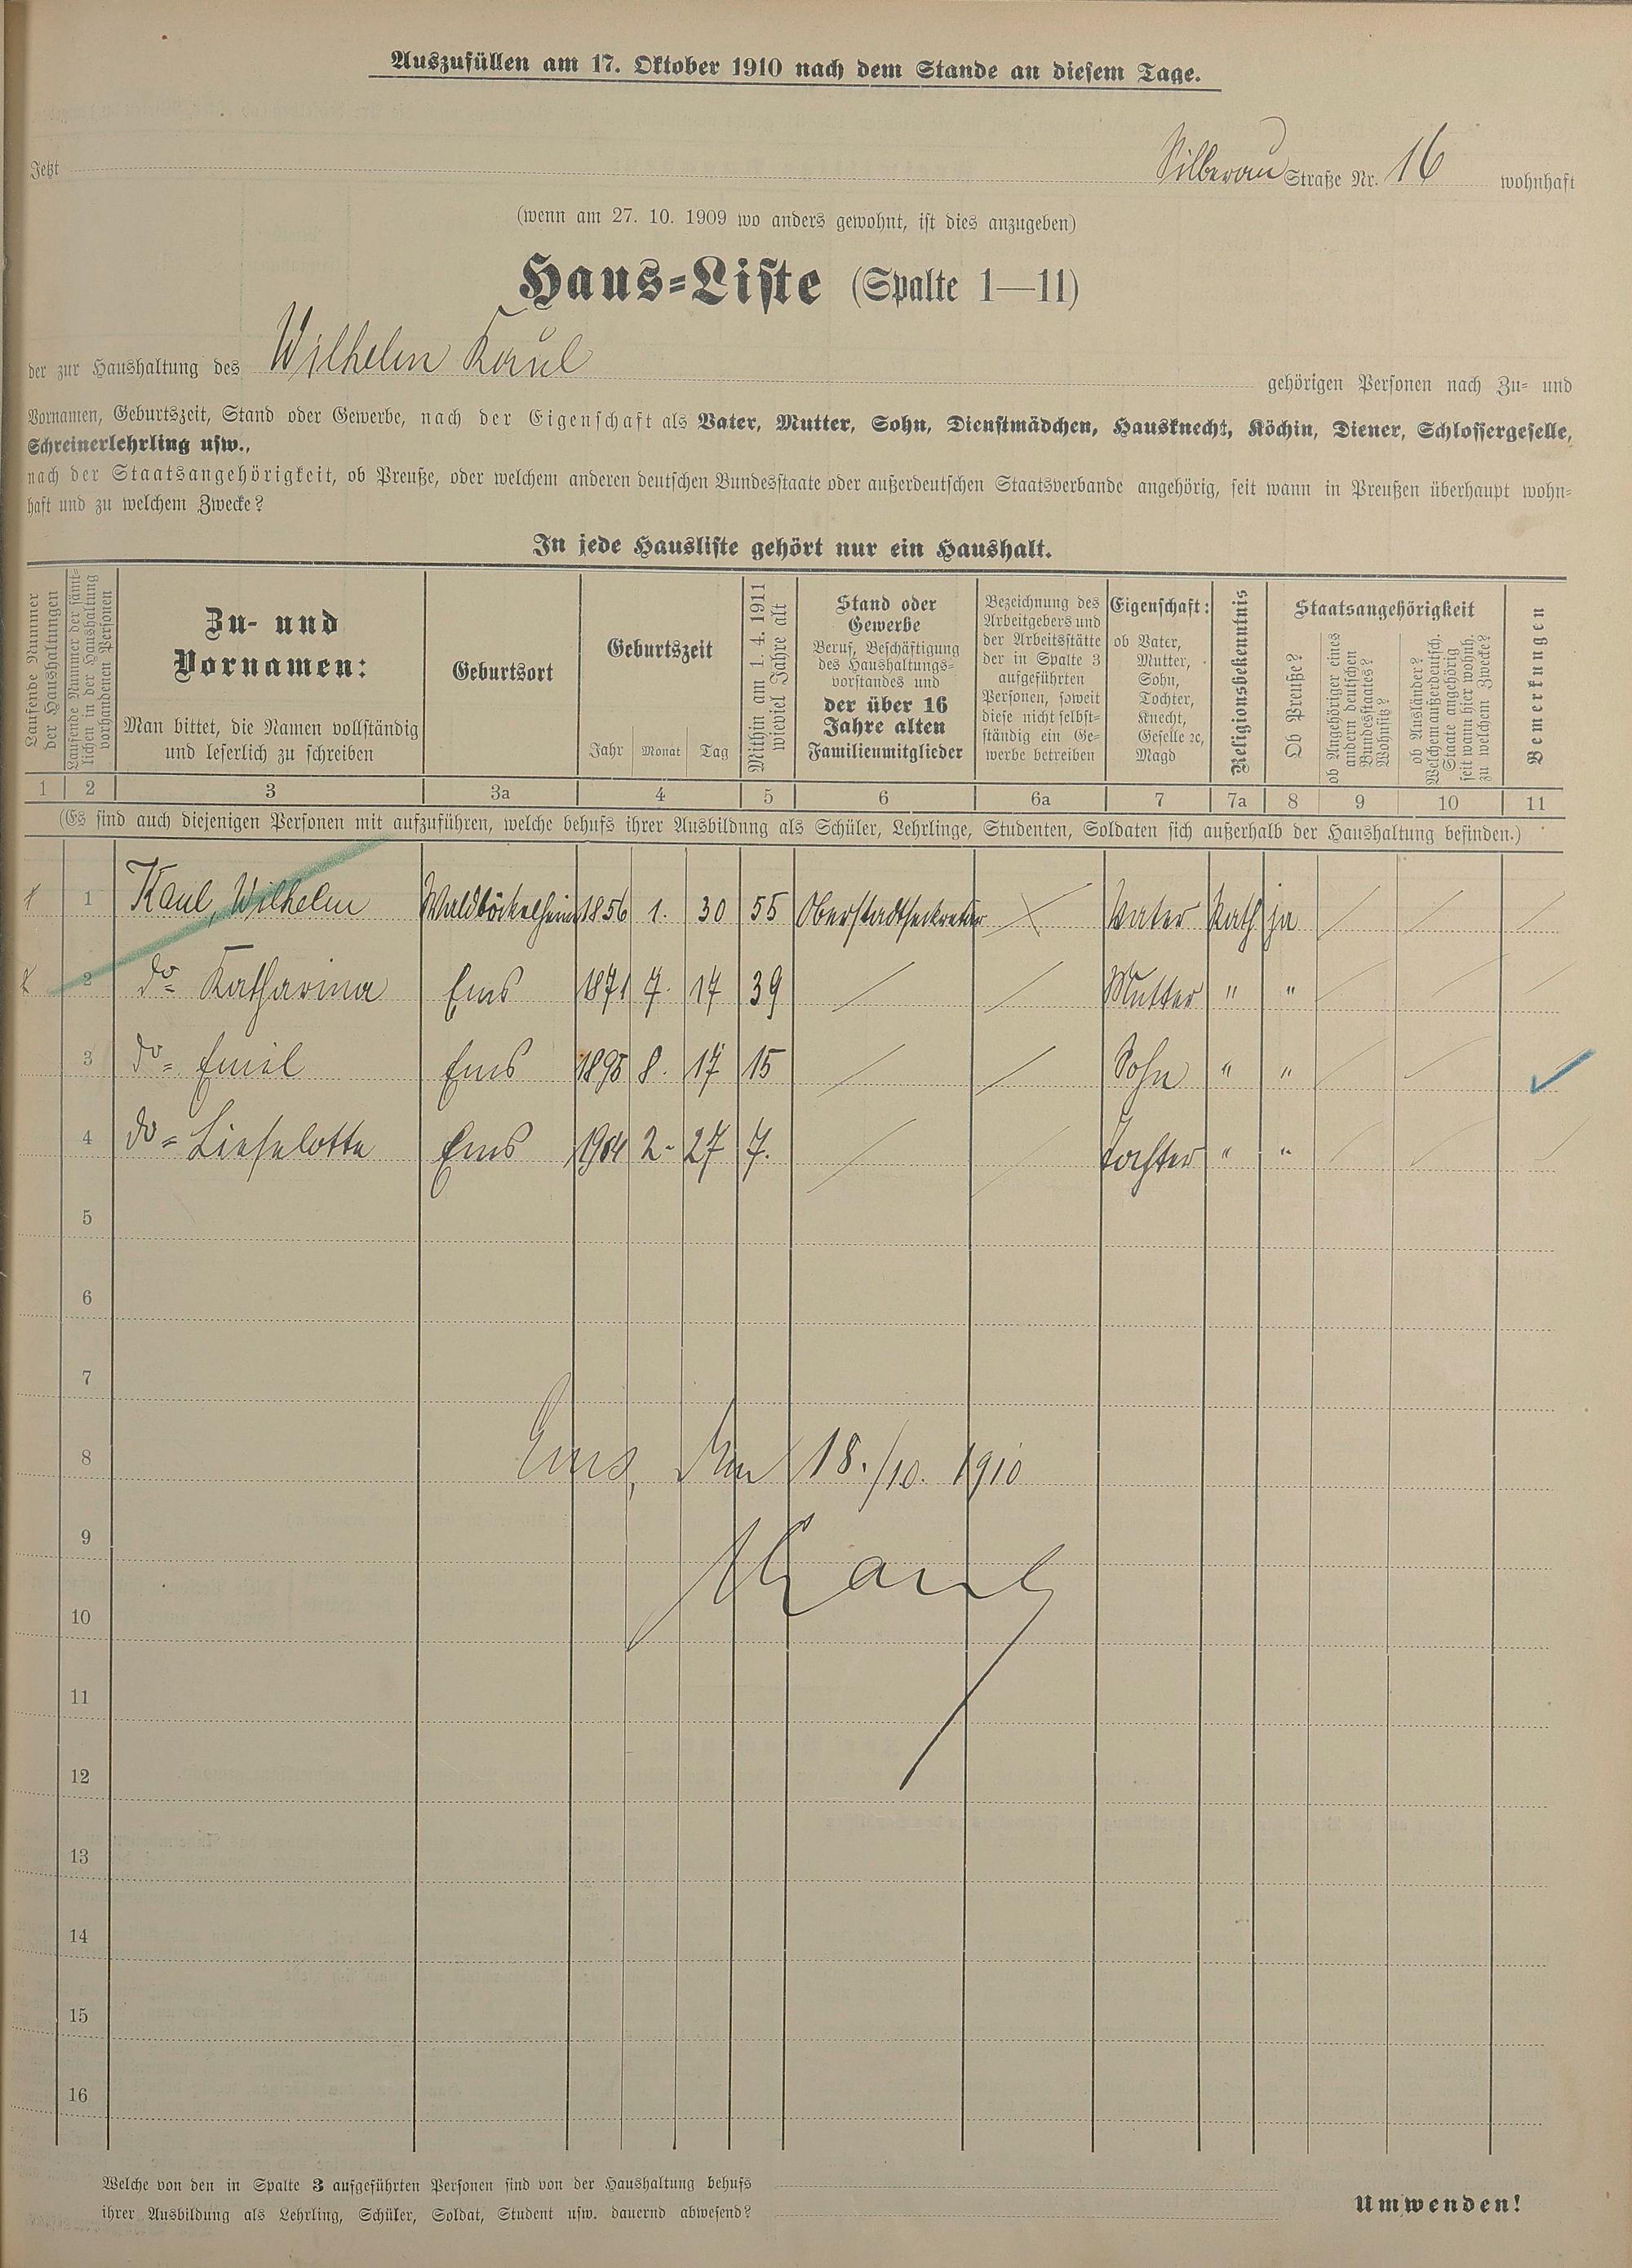 Auszufüllen am 17. Oktober 1910 nach dem Stande an diesem Tage.
Jetzt Silberau Straße Nr. 16 wohnhaft
(wenn am 27. 10. 1909 wo anders gewohnt, ist dies anzugeben)
Haus-Liste (Spalte 1—11)
der zur Haushaltung des Wilhelm Kaul gehörigen Personen nach Zu- und
Vornamen, Geburtszeit, Stand oder Gewerbe, nach der Eigenschaft als Vater, Mutter, Sohn, Dienstmädchen, Hausknecht, Köchin, Diener, Schlossergeselle,
Schreinerlehrling usw.,
nach der Staatsangehörigkeit, ob Preuße, oder welchem anderen deutschen Bundesstaate oder außerdeutschen Staatsverbande angehörig, seit wann in Preußen überhaupt wohn-
haft und zu welchem Zwecke?
In jede Hausliste gehört nur ein Haushalt.
Laufende Nummer
der Haushaltungen
Laufende Nummer der sämt-
lichen in der Haushaltung
vorhandenen Personen
Zu- und
Vornamen:
Man bittet, die Namen vollständig
und leserlich zu schreiben
Geburtsort
Geburtszeit
Jahr Monat Tag
Mithin am 1. 4. 1911
wieviel Jahre alt
Stand oder
Gewerbe
Beruf, Beschäftigung
des Haushaltungs-
vorstandes und
der über 16
Jahre alten
Familienmitglieder
Bezeichnung des
Arbeitgebers und
der Arbeitsstätte
der in Spalte 3
aufgeführten
Personen, soweit
diese nicht selbst-
ständig ein Ge-
werbe betreiben
Eigenschaft:
ob Vater,
Mutter,
Sohn,
Tochter,
Knecht,
Geselle ꝛc,
Magd
Religionsbekenntnis
Staatsangehörigkeit
Ob Preuße?
ob Angehöriger eines
andern deutschen
Bundesstaates?
Wohnsitz?
ob Ausländer?
Welchem außerdeutsch.
Staate angehörig
seit wann hier wohnh.
zu welchem Zwecke?
Bemerkungen
1 2 3 3a 4 5 6 6a 7 7a 8 9 10 11
(Es sind auch diejenigen Personen mit aufzuführen, welche behufs ihrer Ausbildung als Schüler, Lehrlinge, Studenten, Soldaten sich außerhalb der Haushaltung befinden.)
1 Kaul, Wilhelm Waldböckelheim 1856 1. 30 55 Oberstadtsekretär Vater Kath ja
2 do= Katharina Ems 1871 7. 17 39 Mutter " "
3 do= Emil Ems 1895 8. 17 15 Sohn " "
4 do= Lieselotte Ems 1904 2- 27 7. Tochter " "
5
6
7
8 Ems, den 18./10. 1910
9 Kaul
10
11
12
13
14
15
16
Welche von den in Spalte 3 aufgeführten Personen sind von der Haushaltung behufs
ihrer Ausbildung als Lehrling, Schüler, Soldat, Student usw. dauernd abwesend?
Umwenden!